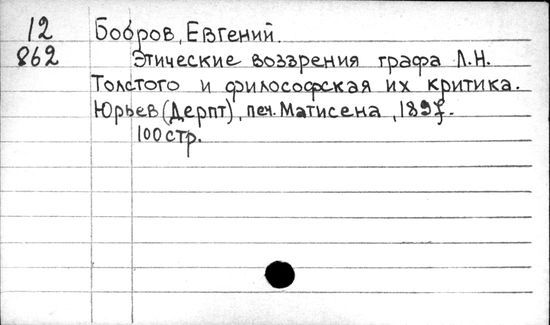 12 Бобров, Евгений.
862 Этические воззрения графа Л.Н.
Толстого и философская их критика.
Юрьев (Дерпт), печ. Матисена, 1897.
100 стр.